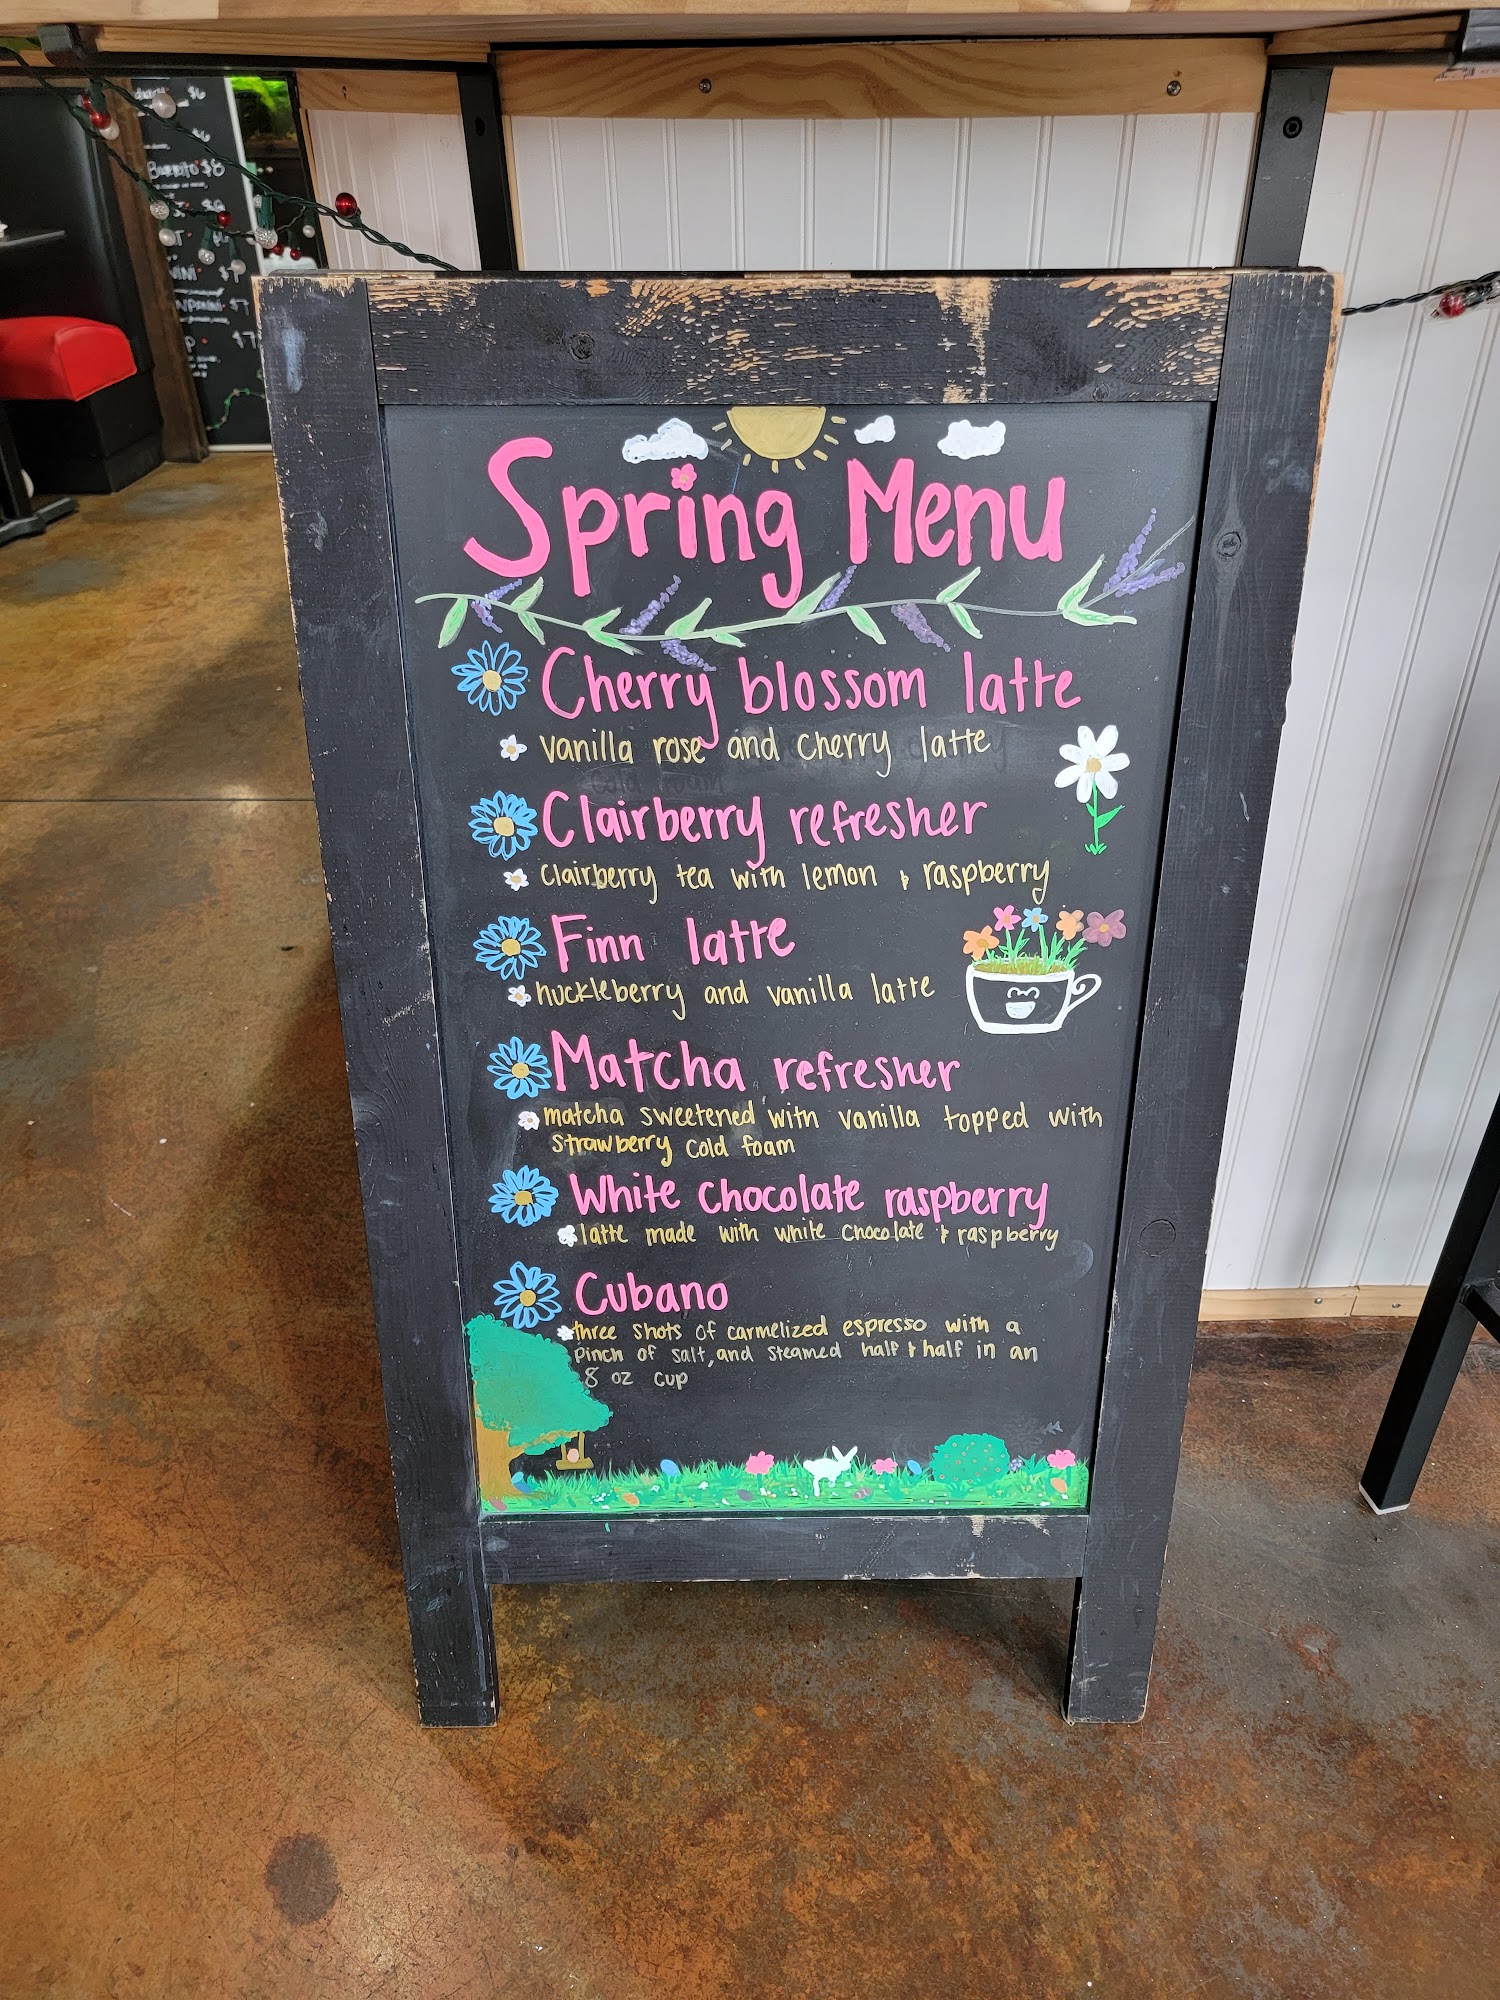 Spring Menu
Cherry blossom latte
vanilla rose and cherry latte
Clairberry refresher
clairberry tea with lemon & raspberry
Finn latte
huckleberry and vanilla latte
Matcha refresher
matcha sweetened with vanilla topped with
strawberry cold foam
White chocolate raspberry
latte made with white chocolate & raspberry
Cubano
three shots of carmelized espresso with a
pinch of salt, and steamed half & half in an
8 oz cup
Burrito $8